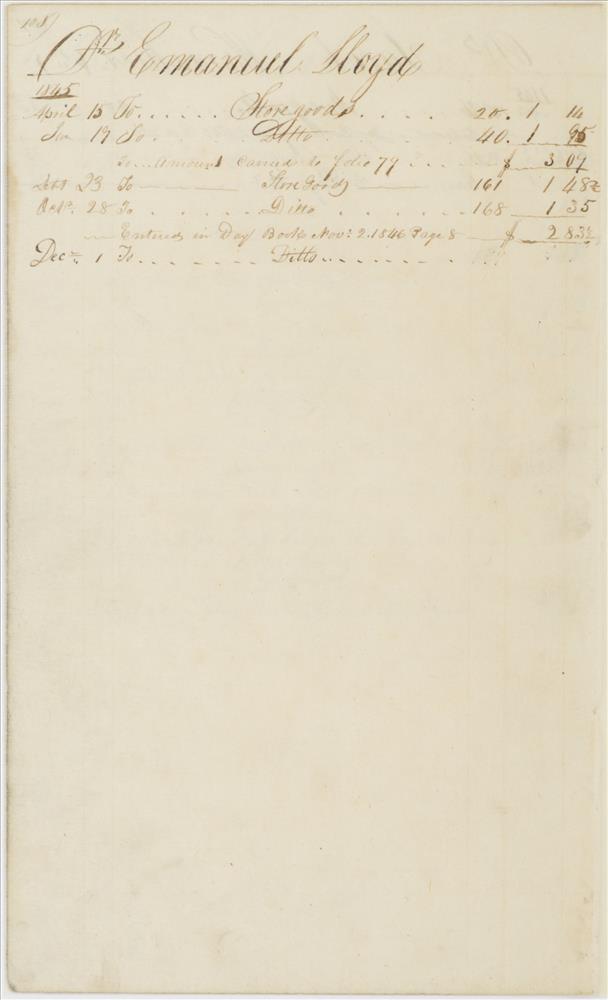 108
Dr. Emanuel Lloyd
1845
April 15 To . . . . . . Store goods . . . . 20. 1 14
Jun 19 To . . . . . . Ditto . . . . . . 40. 1 95
To . . Amount Carried to folio 79 . . . $ 3 09
Sept 23 To ——— Store Goods ——— 161 1 48½
Octr. 28 To . . . . . Ditto . . . . . . . 168 1 35
Entered in Day Book Novr. 2. 1846 Page 8 — $ 2 83½
Decr. 1 To . . . . . . . Ditto . . . . . . .